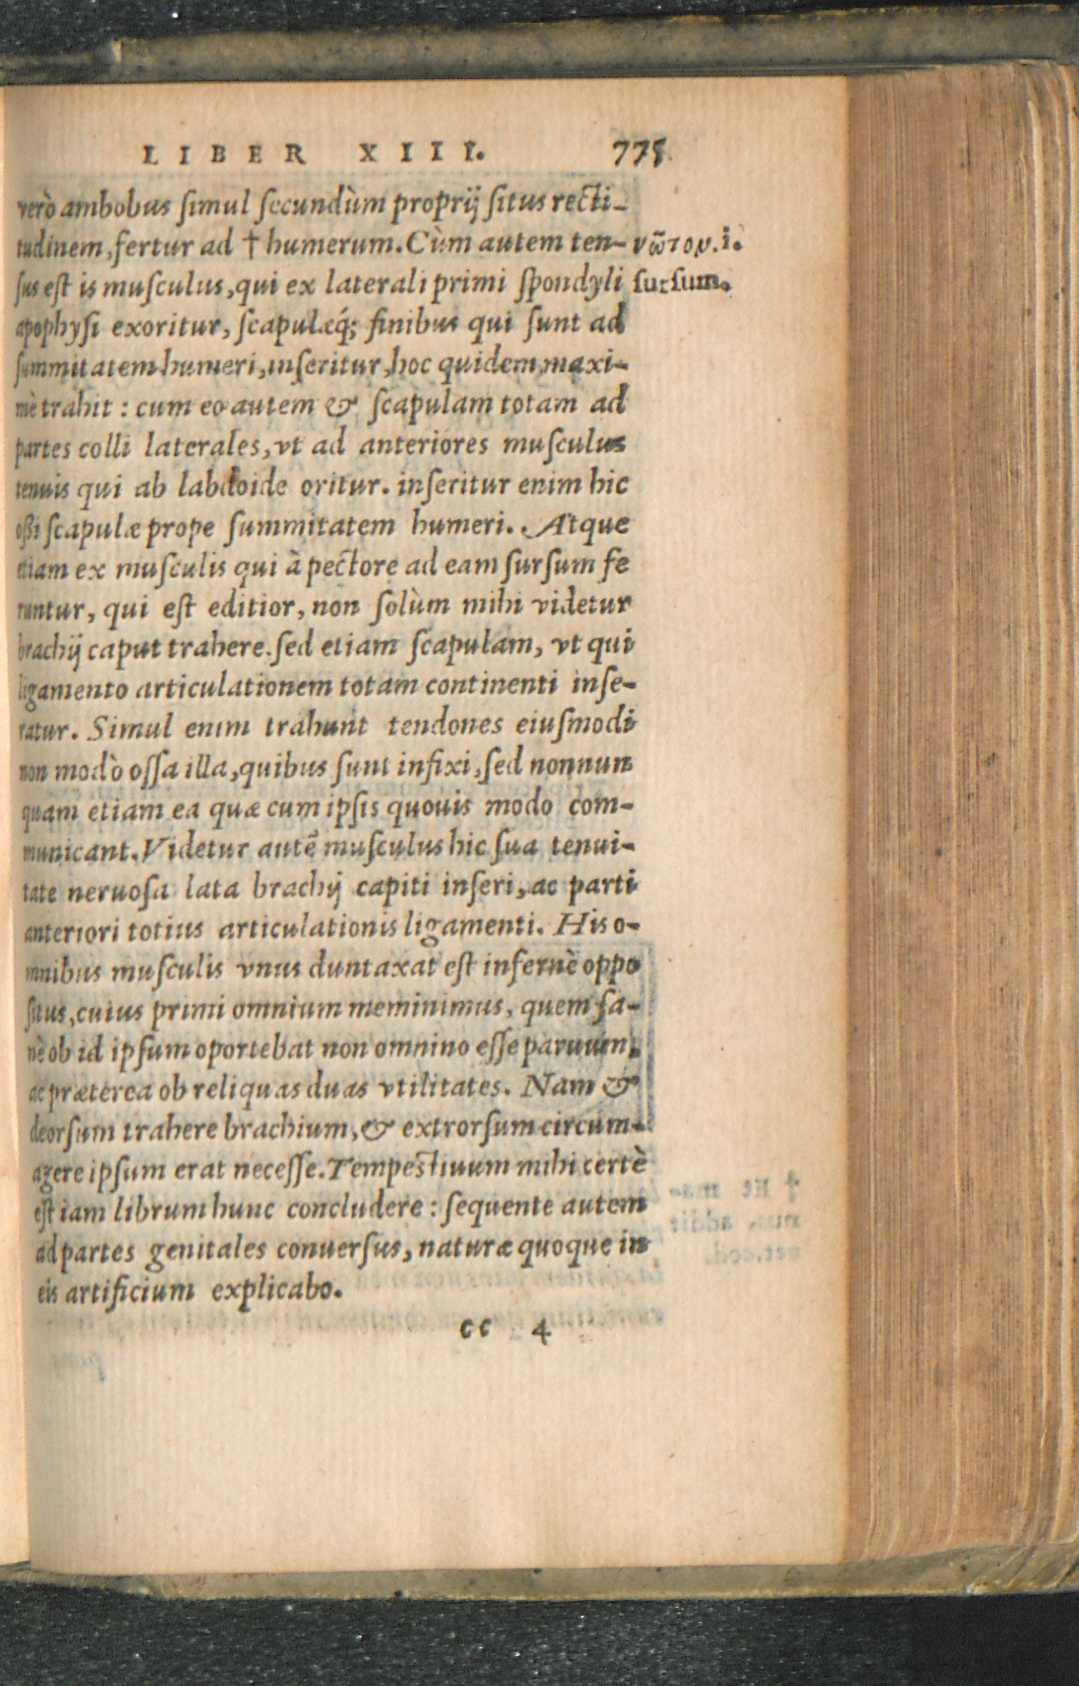 LIBER XIII. 775
verò ambobus ſimul ſecundùm proprij ſitus recti-
tudinem, fertur ad † humerum. Cùm autem ten-
νῶτον. i.
ſus eſt is muſculus, qui ex laterali primi ſpondyli
ſurſum.
apophyſi exoritur, ſcapulæq́; finibus qui ſunt ad
ſummitatem humeri, inſeritur, hoc quidem maxi-
mè trahit : cum eo autem & ſcapulam totam ad
partes colli laterales, vt ad anteriores muſculus
tenuis qui ab labdoide oritur. inſeritur enim hic
oßi ſcapulæ prope ſummitatem humeri. Atque
etiam ex muſculis qui à pectore ad eam ſurſum fe
runtur, qui eſt editior, non ſolùm mihi videtur
brachij caput trahere. ſed etiam ſcapulam, vt qui
ligamento articulationem totam continenti inſe-
ratur. Simul enim trahunt tendones eiuſmodi
non modò oſſa illa, quibus ſunt infixi, ſed nonnun
quam etiam ea quæ cum ipſis quouis modo com-
municant. Videtur autē muſculus hic ſua tenui-
tate neruoſa lata brachij capiti inſeri, ac parti
anteriori totius articulationis ligamenti. His o-
mnibus muſculis vnus duntaxat eſt infernè oppo
ſitus, cuius primi omnium meminimus, quem ſa-
nè ob id ipſum oportebat non omnino eſſe paruum,
ac præterea ob reliquas duas vtilitates. Nam &
deorſum trahere brachium, & extrorſum circum-
agere ipſum erat neceſſe. Tempeſtiuum mihi certè
eſt iam librum hunc concludere : ſequente autem
ad partes genitales conuerſus, naturæ quoque in
eis artificium explicabo.
cc 4